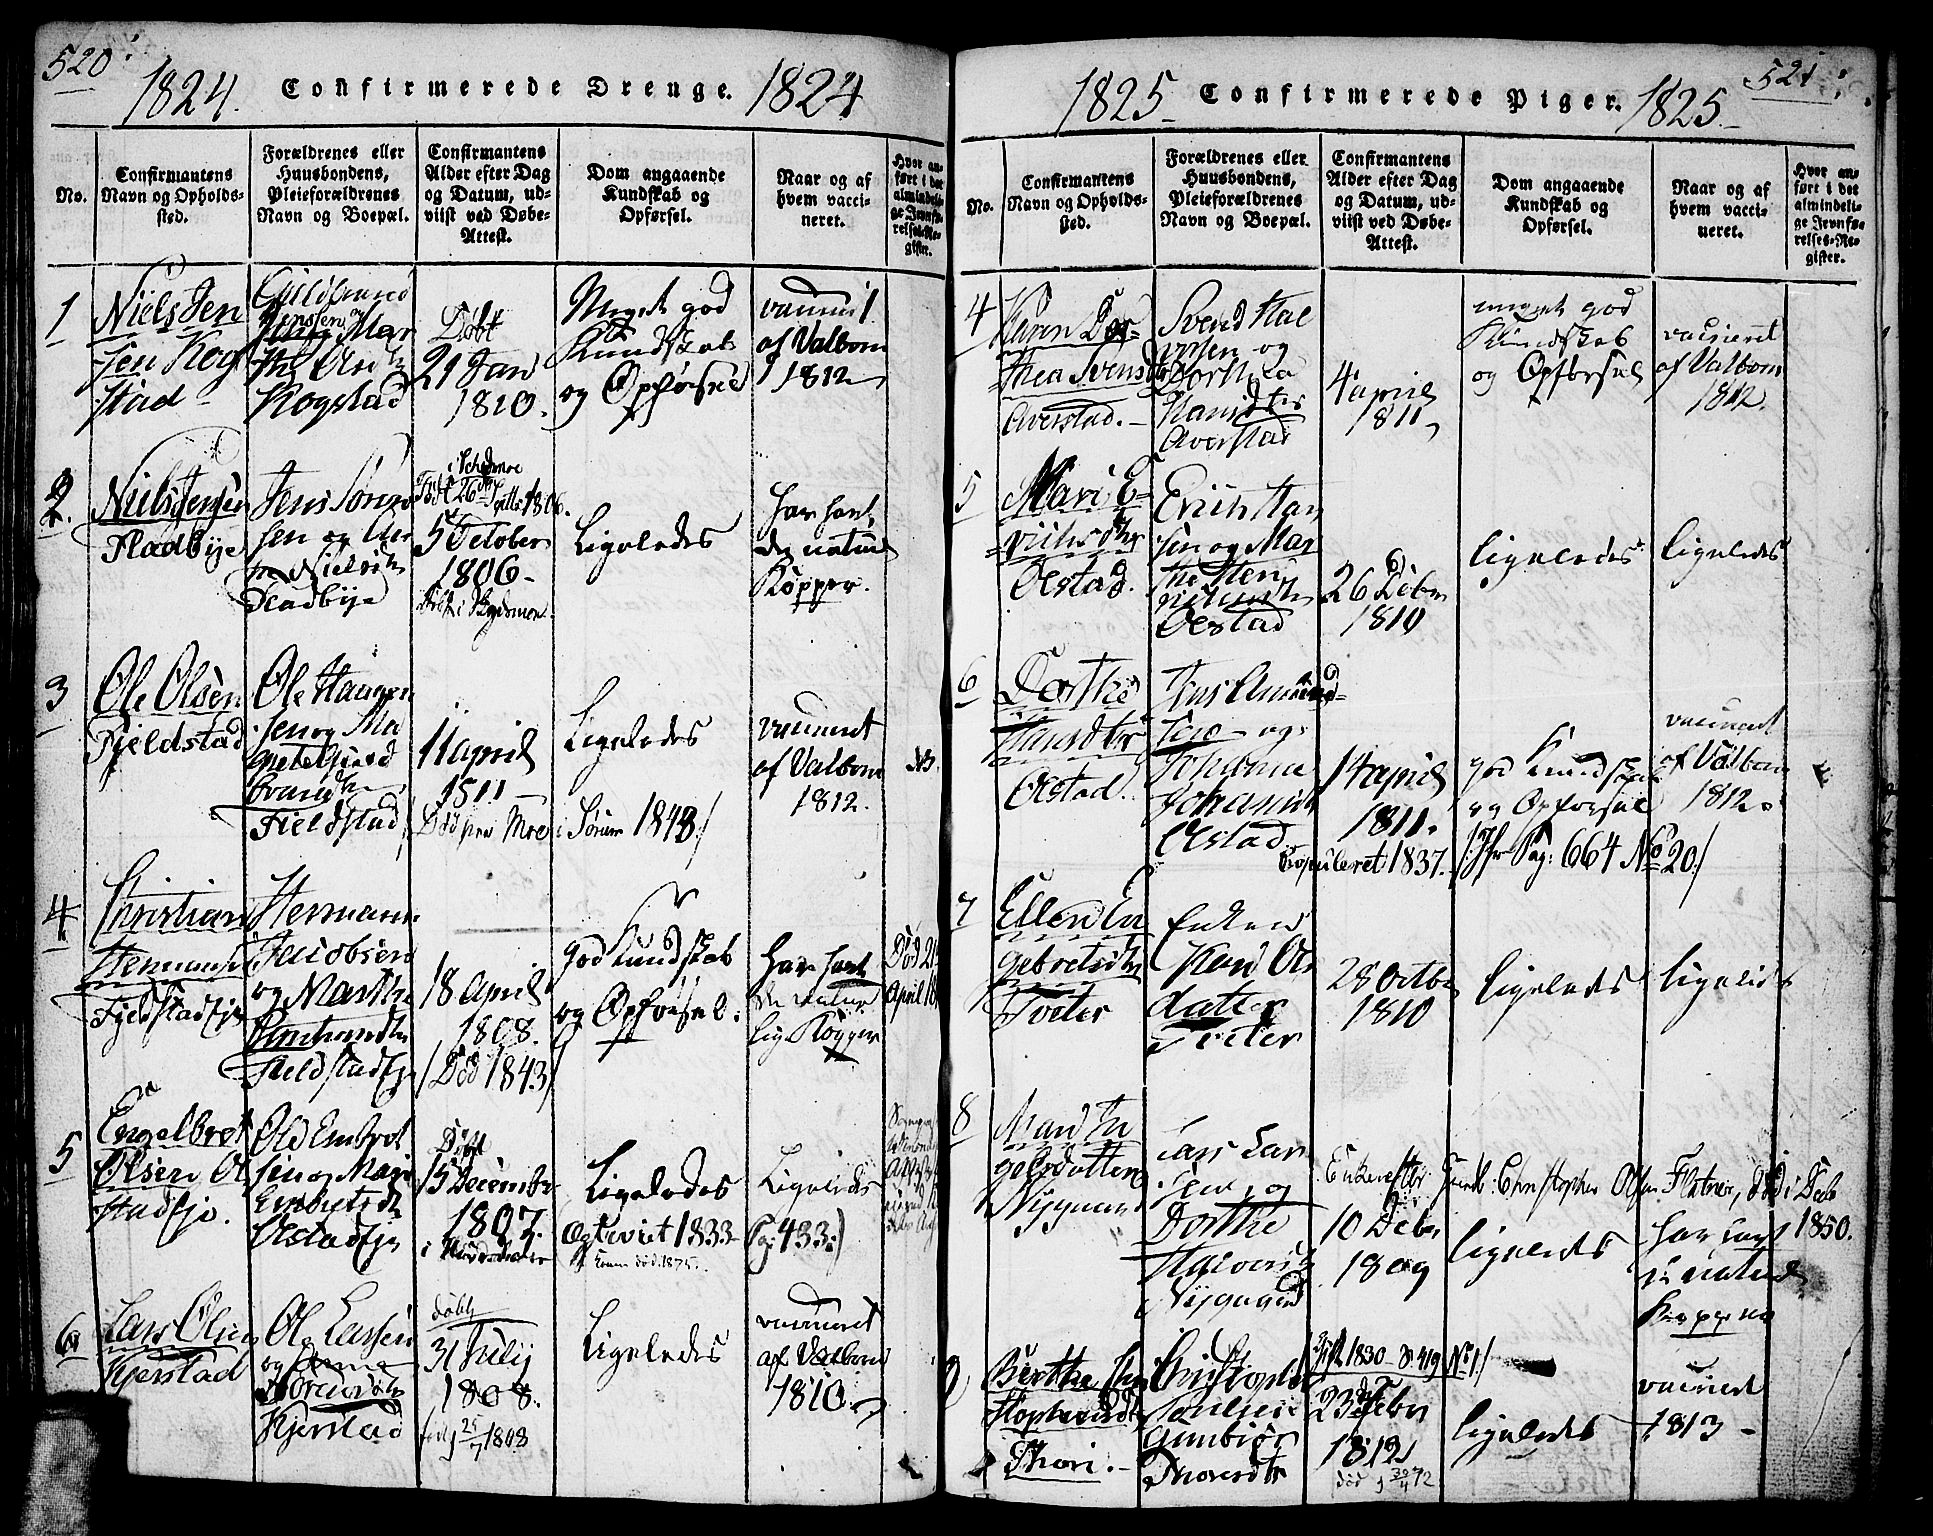 520.
1824. Confirmerede Drenge. 1824
No.
Confirmantens
Navn og Opholds-
sted.
Forældrenes eller
Huusbondens,
Pleieforældrenes
Navn og Boepæl.
Confirmantens
Alder efter Dag
og Datum, ud-
viist ved Døbe-
Attest.
Dom angaaende
Kundskab og
Opførsel.
Naar og af
hvem vacci-
neret.
Hvor an-
ført i det
almindeli-
ge Jevnfø-
relses-Re-
gister.
1
Niels Jen
sen Kog
stad
Jensen og Mar
the Olsdtr
Kogstad
Døbt
21 Jan
1810.
Meget god
Kundskab
og Opførsel
vaccineret
af Valbom
1812
2.
Niels Jensen
Fladbye
Jens
Fladbye
5 October
1806
Ligeledes
har havt
de naturl
Kopper.
3
Ole Olsen
Fjeldstad
Ole Haagen
sen og Ma
Fjeldstad
11 april
1811
Død paa Moe i Sørum 1848:/
Ligeledes
vaccineret
af Valbom
1812.
4
Christian
Hermansen
Fjeldstadeje
Hermann
Jacobsen
og Marthe
Fjeldstadeje
18 april
1808.
/Død 1843/
god Kundskab
og Opførsel.
har havt
de natur
lig Kopper
Død 21
April
5
Engelbret
Olsen Ol
stadeje.
Ole Embret
sen og Mari
Embretsdtr
Olstadeje
Døbt
15 Decembr
1807.
Ligeledes
Copuleret 1833
Konen død 1875.
Ligeledes
Pg: 433:)
6
Lars Olsen
Kjerstad
Ole Larsen
og Anne
Kjerstad
døbt
31 July
1808.
født 25/7 1808
Ligeledes
vaccineret
af Valbom
1810.
521.
1825 Confirmerede Piger. 1825
No.
Confirmantens
Navn og Opholds-
sted.
Forældrenes eller
Huusbondens,
Pleieforældrenes
Navn og Boepæl.
Confirmantens
Alder efter Dag
og Datum, ud-
viist ved Døbe-
Attest.
Dom angaaende
Kundskab og
Opførsel.
Naar og af
hvem vacci-
neret.
Hvor an-
ført i det
almindeli-
ge Jevnfø-
relses-Re-
gister.
4
Karen Dor-
thea Svensdtr
Averstad.
Svend Hal
vorsen og
Hansdtr
Averstad
4 april
1811
meget god
Kundskab
og Opførsel
vaccineret
af Valbom
1812.
5
Mari E-
richsdtr
Olstad.
Erich Han
sen og Mar
the
Olstad
26 Debr
1810
ligeledes
ligeledes
6
Dorthe
Hansdtr
Olstad
Johanne
Johansdtr
Olstad
14 april
1811.
Copuleret 1837.
god Kundskab
og Opførsel
/: Jfr Pag: 664 No 20/
vaccineret
af Valbom
1812.
7
Ellen En
gebretsdtr
Tveter
Enken
Kari Ols
datter
Tveter
28 Octbr
1810
ligeledes
ligeledes
8
Mari En
gelsdatter
Nygaard
Lars Lar
sen og
Dorthe
Halvorsdtr
Nygaard
Enke efter Gaardb: Christopher Olsen Flatner, død i Deb
1850.
10 Debr
1809
ligeledes
har havt
de naturl
Kopper
9
Berthe Chri
stophersdtr
Thori.
Christopher
Poulsen
Gunbiør
Thoresdtr
Gift 1830 - P. 419 No 1/
23de Febr
1812
død 30/4 72
ligeledes
vaccineret
1813